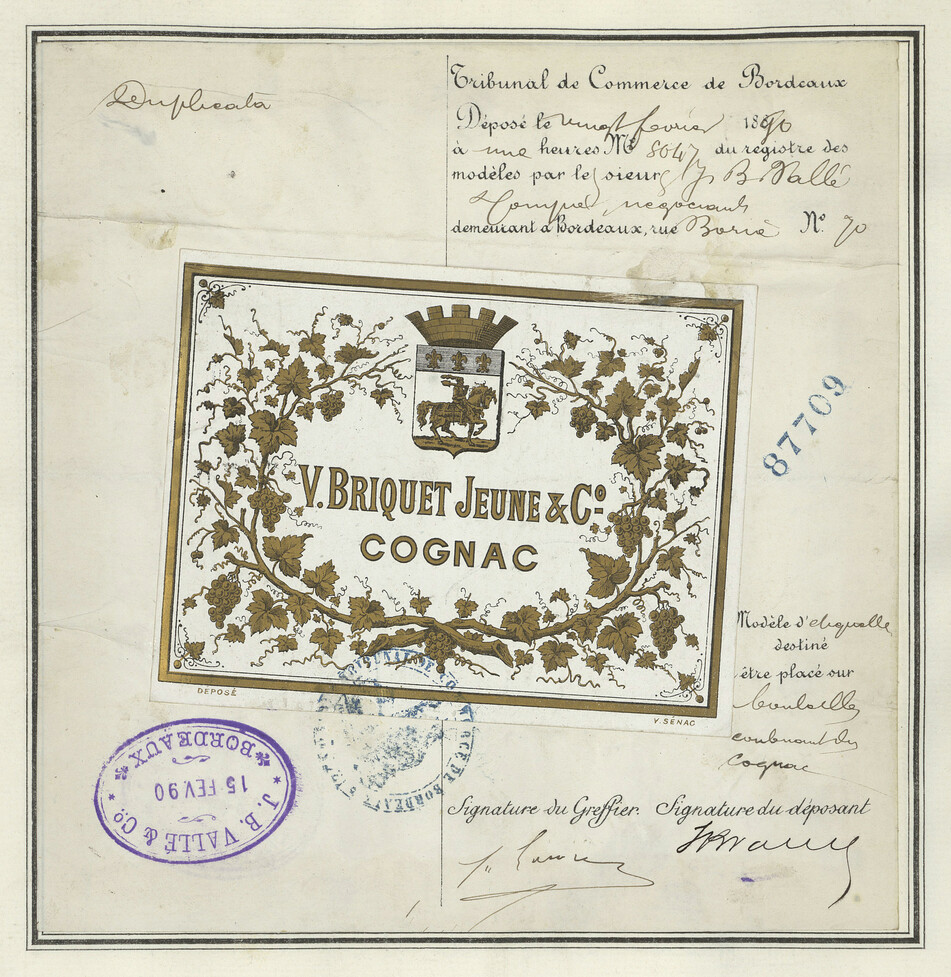 Duplicata
Tribunal de Commerce de Bordeaux
Déposé le vingt février 1890
à une heures Nº 8047 du registre des
modèles par le sieurs J B Vallé
négociants
demeurant à Bordeaux, rue Borie Nº 70
V. BRIQUET JEUNE & Cº
COGNAC
DÉPOSÉ
V. SÉNAC
87709
Modèle d'etiquette
destiné
être placé sur
bouteilles
contenant du
Cognac
TRIBUNAL DE COMMERCE DE BORDEAUX
J. B. VALLÉ & Cº
15 FEV 90
BORDEAUX
Signature du Greffier. Signature du déposant